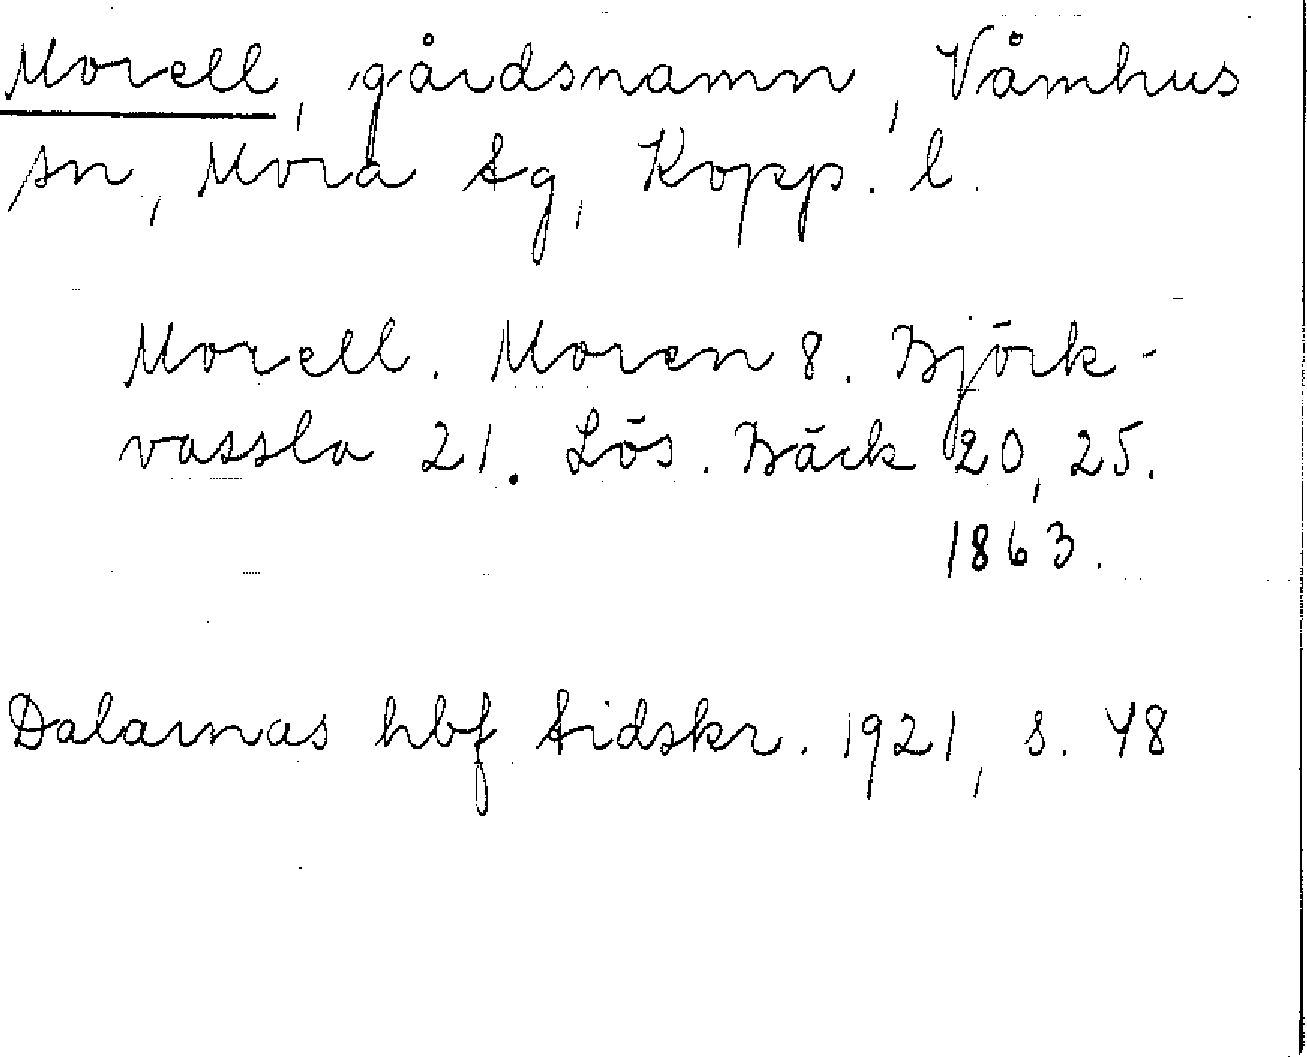 Morell, gårdsnamn, Våmhus
sn, Mora tg, Kopp. l.
Morell. Moren 8. Björk-
vassla 21. Lös. Bäck 20, 25.
1863.
Dalarnas hbf tidskr. 1921, s. 48